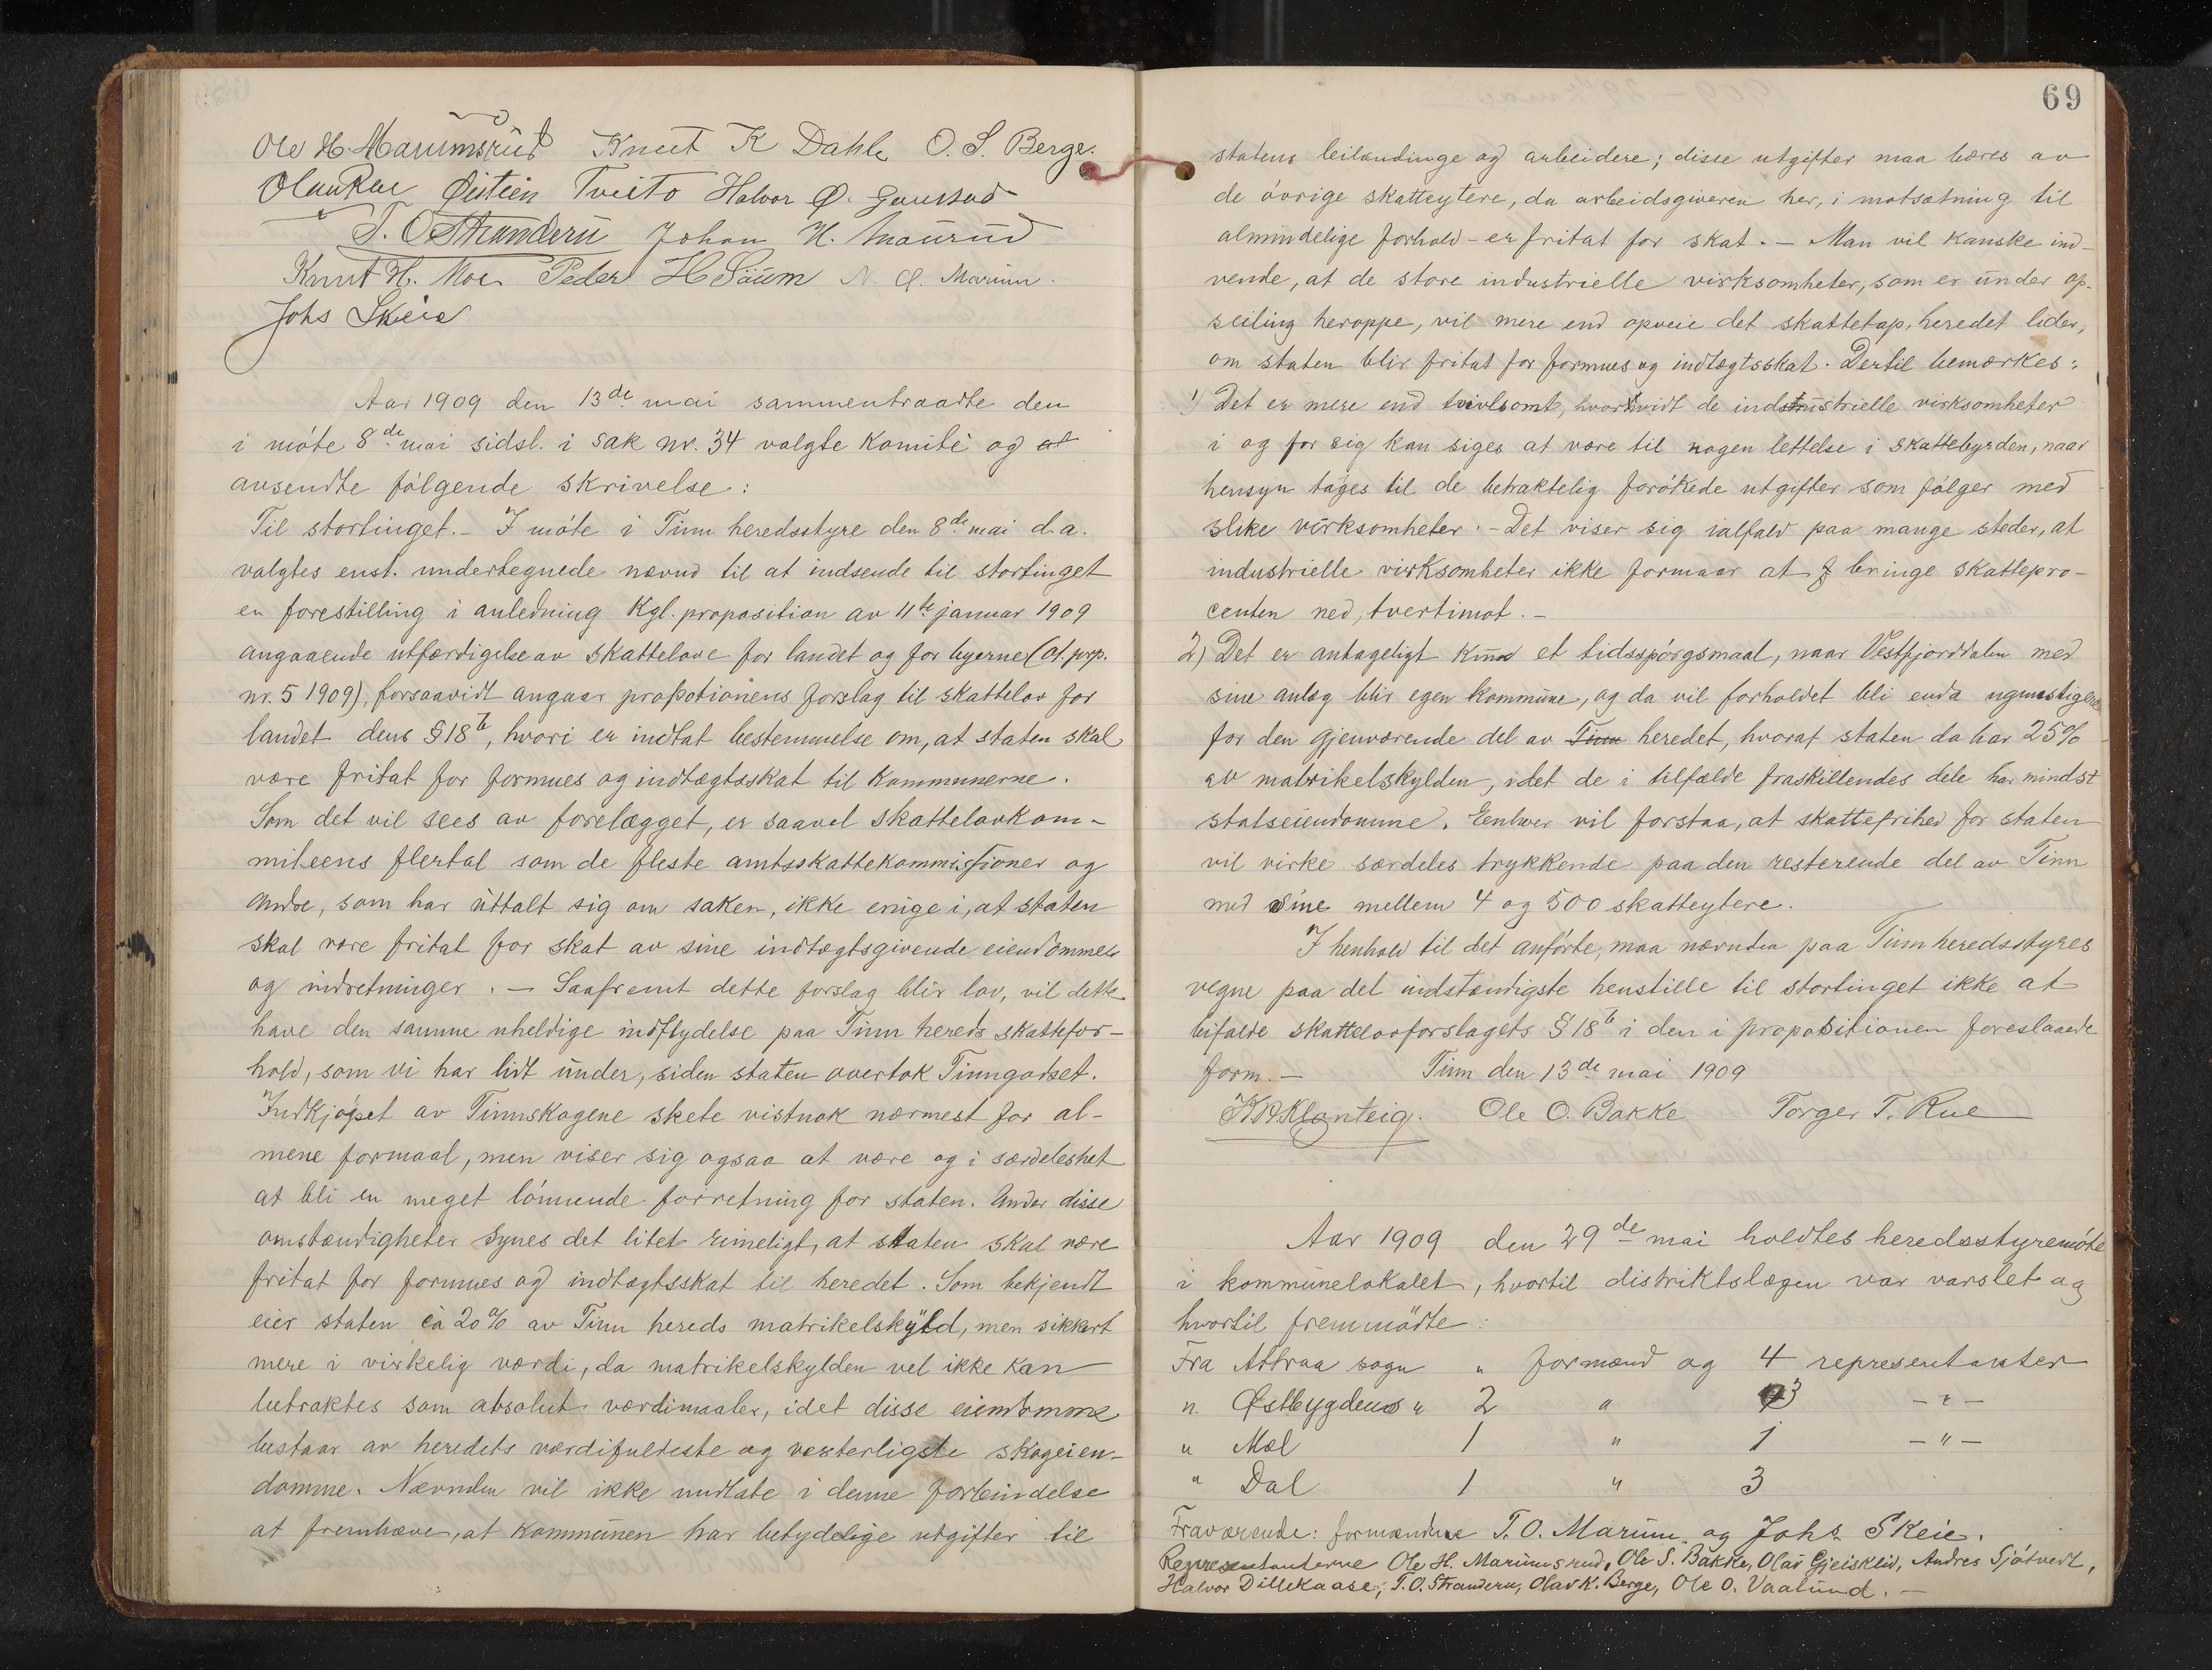 Ole H. Marumsrud Knut K Dahle O. S. Berge.
Olav Rue Øistein Tveito Halvor Ø. Gaustad
T. O Stranderu Johan H. Maurud
Knut H. Moe Peder H Söüm N. O. Marum.
Johs Skeie
Aar 1909 den 13de mai sammentraadte den
i möte 8de mai sidsl. i sak nr. 34 valgte komité og at
avsendte fölgende skrivelse:
Til stortinget. – I möte i Tinn heredsstyre den 8de mai d.a.
valgtes enst. undertegnede nævnd til at indsende til stortinget
en forestilling i anledning Kgl. proposition av 11te januar 1909
angaaende utfærdigelse av skattelove for landet og for byerne (Ot. prp.
nr. 5 1909), forsaavidt angaar propotionens forslag til skattelov for
landet dens § 18b, hvori er indtat bestemmelse om, at staten skal
være fritat for formues og indtægtsskat til Kommunerne.
Som det vil sees av forelægget, er saavel skattelovkom-
miteens flertal som de fleste amtsskattekommissioner og
andre, som har üttalt sig om saken, ikke enige i, at staten
skal være fritat for skat av sine indtægtsgivende eiendommer
og indretninger. – Saafremt dette forslag blir lov, vil dette
have den samme uheldige indflydelse paa Tinn hereds skattefor-
hold, som vi har lidt ünder, siden staten overtok Tinngodset.
Indkjöpet av Tinnskogene skete vistnok nærmest for al-
mene formaal, men viser sig ogsaa at være og i særdeleshet
at bli en meget lönnende forretning for staten. Under disse
omstændigheter synes det litet rimeligt, at staten skal være
fritat for formues og indtægtsskat til heredet. Som bekjendt
eier staten ca 20% av Tinn hereds matrikelskyld, men sikkert
mere i virkelig værdi, da matrikelskylden vel ikke kan
betraktes som absolut værdimaaler, idet disse eiendomme
bestaar av heredets værdifuldeste og vesterligste skogeien-
domme. Nævnden vil ikke undlate i denne forbindelse
at fremhæve, at kommünen har betydelige utgifter til
69
statens leilændinge og arbeidere; disse utgifter maa bæres av
de övrige skatteytere, da arbeidsgiveren her, i motsætning til
almindelige forhold – er fritat for skat. – Man vil kanske ind-
vende, at de store industrielle virksomheter, som er ünder op-
seiling heroppe, vil mere end opveie det skattetap, heredet lider,
om staten blir fritat for formues og indtægtsskat. Dertil bemærkes:
1) Det er mere end tvivlsomt, hvorvidt de industrielle virksomheter
i og for sig kan siges at være til nogen lettelse i skattebyrden, naar
hensyn tages til de betraktelig forökede utgifter som fölger med
slike virksomheter. – Det viser sig ialfald paa mange steder, at
industrielle virksomheter ikke formaar at bringe skattepro-
centen ned, tvertimot. –
2) Det er antageligt kün et tidsspörgsmaal, naar Vestfjorddalen med
sine anlæg blir egen kommüne, og da vil forholdet bli enda ugunstigere
for den gjenværende del av Tinn heredet, hvoraf staten da har 25%
av matrikelskylden, idet de i tilfælde fraskillendes dele har mindst
statseiendomme. Eenhver vil forstaa, at skattefrihed for staten
vil virke særdeles trykkende paa den resterende del av Tinn
med sine mellem 4 og 500 skatteytere.
I henhold til det anförte, maa nævnden paa Tinn heredsstyres
vegne paa det indstændigste henstille til stortinget ikke at
bifalde skattelovforslagets § 18b i den i propositionen foreslaaede
form. – Tinn den 13de mai 1909
K A Klonteig. Ole O. Bakke Torger T. Rue
Aar 1909 den 29de mai holdtes heredsstyremöte
i kommünelokalet, hvortil distriktslægen var varslet og
hvortil fremmödte:
Fra Attraa sogn " formænd og 4 representanter
" Østbygdens " 2 " 3 – " –
" Mæl 1 " 1 – " –
" Dal 1 " 3
Fraværende: formændene T. O. Marüm og Johs. Skeie.
Representanterne Ole H. Marumsrud, Ole S. Bakke, Olav Gjeisklid, Andres Sjötvedt,
Halvor Dillekaase, T. O. Stranderu, Olav K. Berge, Ole O. Vaalünd. –